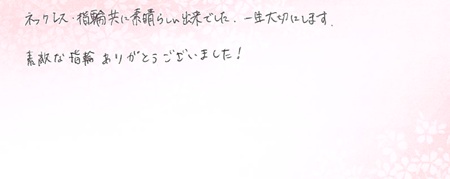 ネックレス・指輪共に素晴らしい出来でした. 一生大切にします.
素敵な指輪 ありがとうございました!